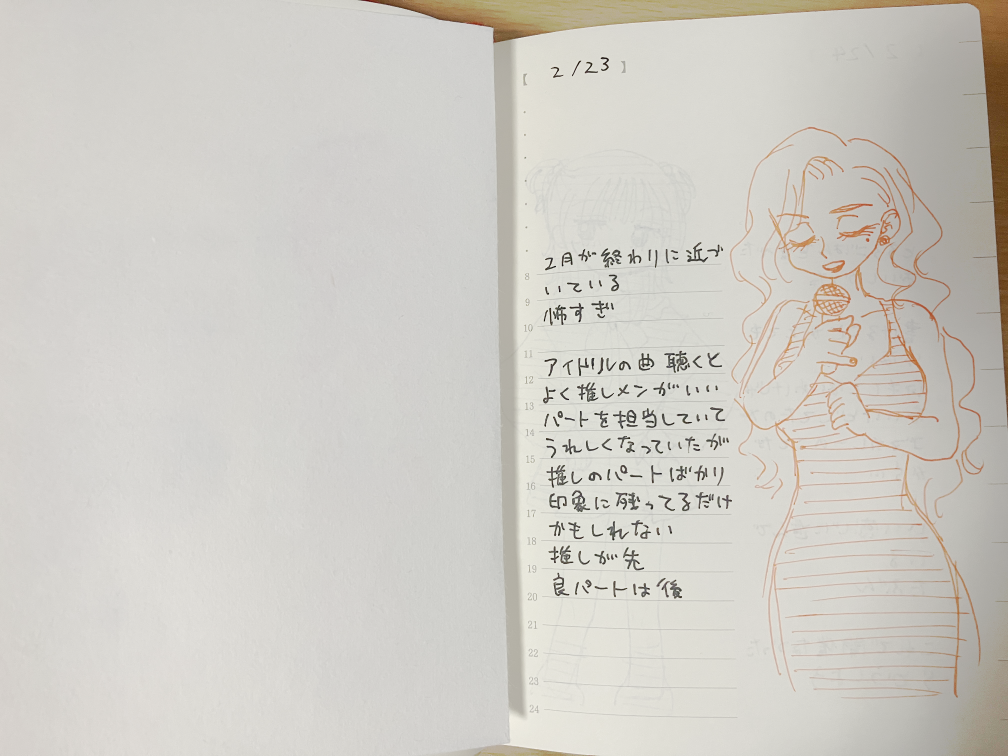 【 2/23 】
2月が終わりに近づ
いている
怖すぎ
アイドルの曲聴くと
よく推しメンがいい
パートを担当していて
うれしくなっていたが
推しのパートばかり
印象に残ってるだけ
かもしれない
推しが先
良パートは後
8
9
10
11
12
13
14
15
16
17
18
19
20
21
22
23
24